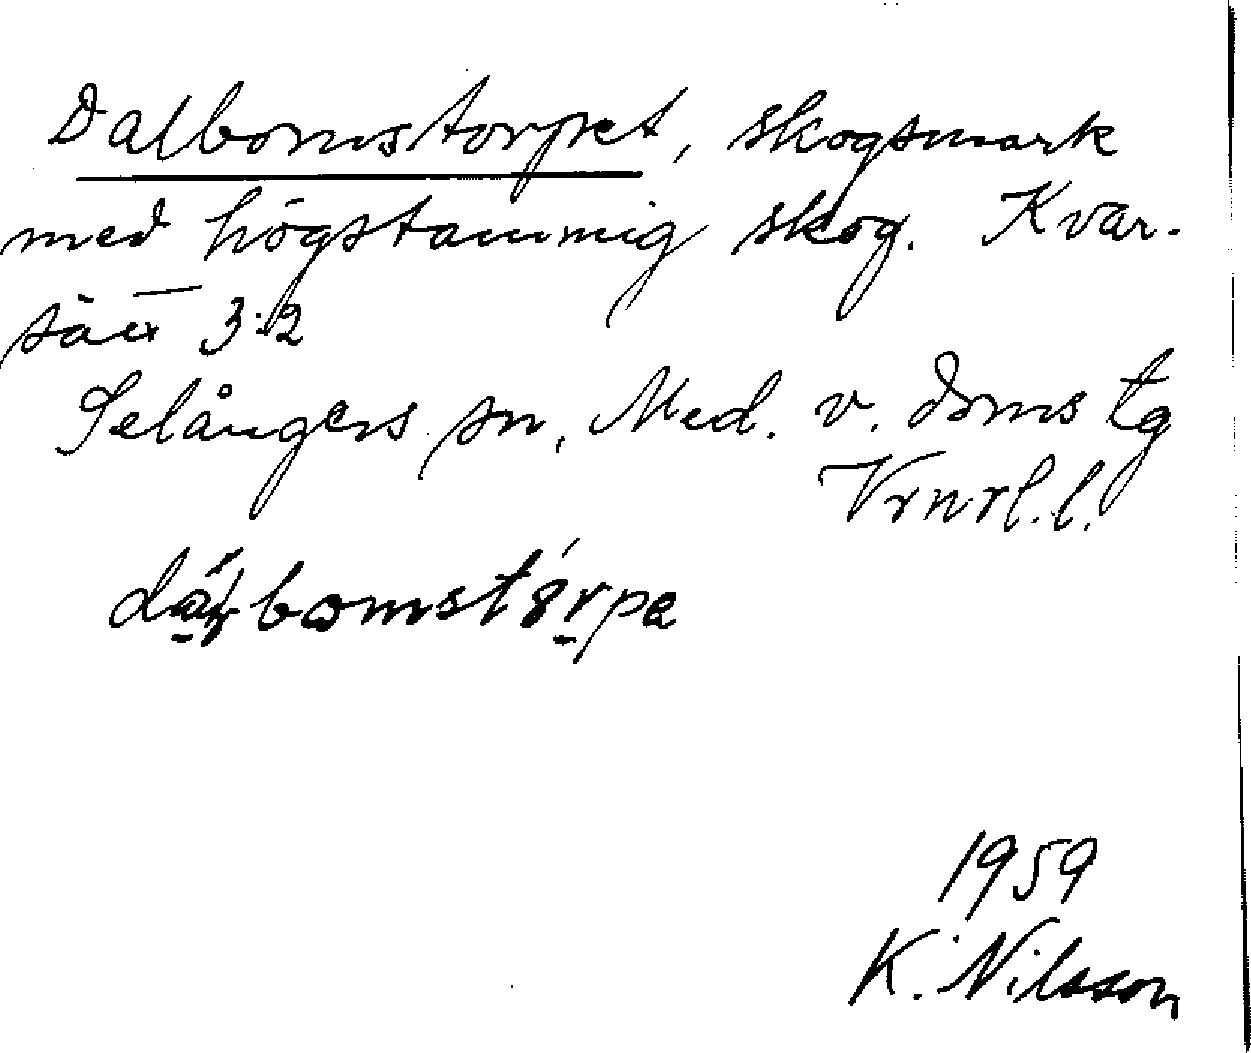 Dalbomstorpet, skogsmark
med högstammig skog. Kvar-
sätt 3:2
Selångers sn, Med. v. doms tg
Vrnrl. l.
1959
K. Nilsson